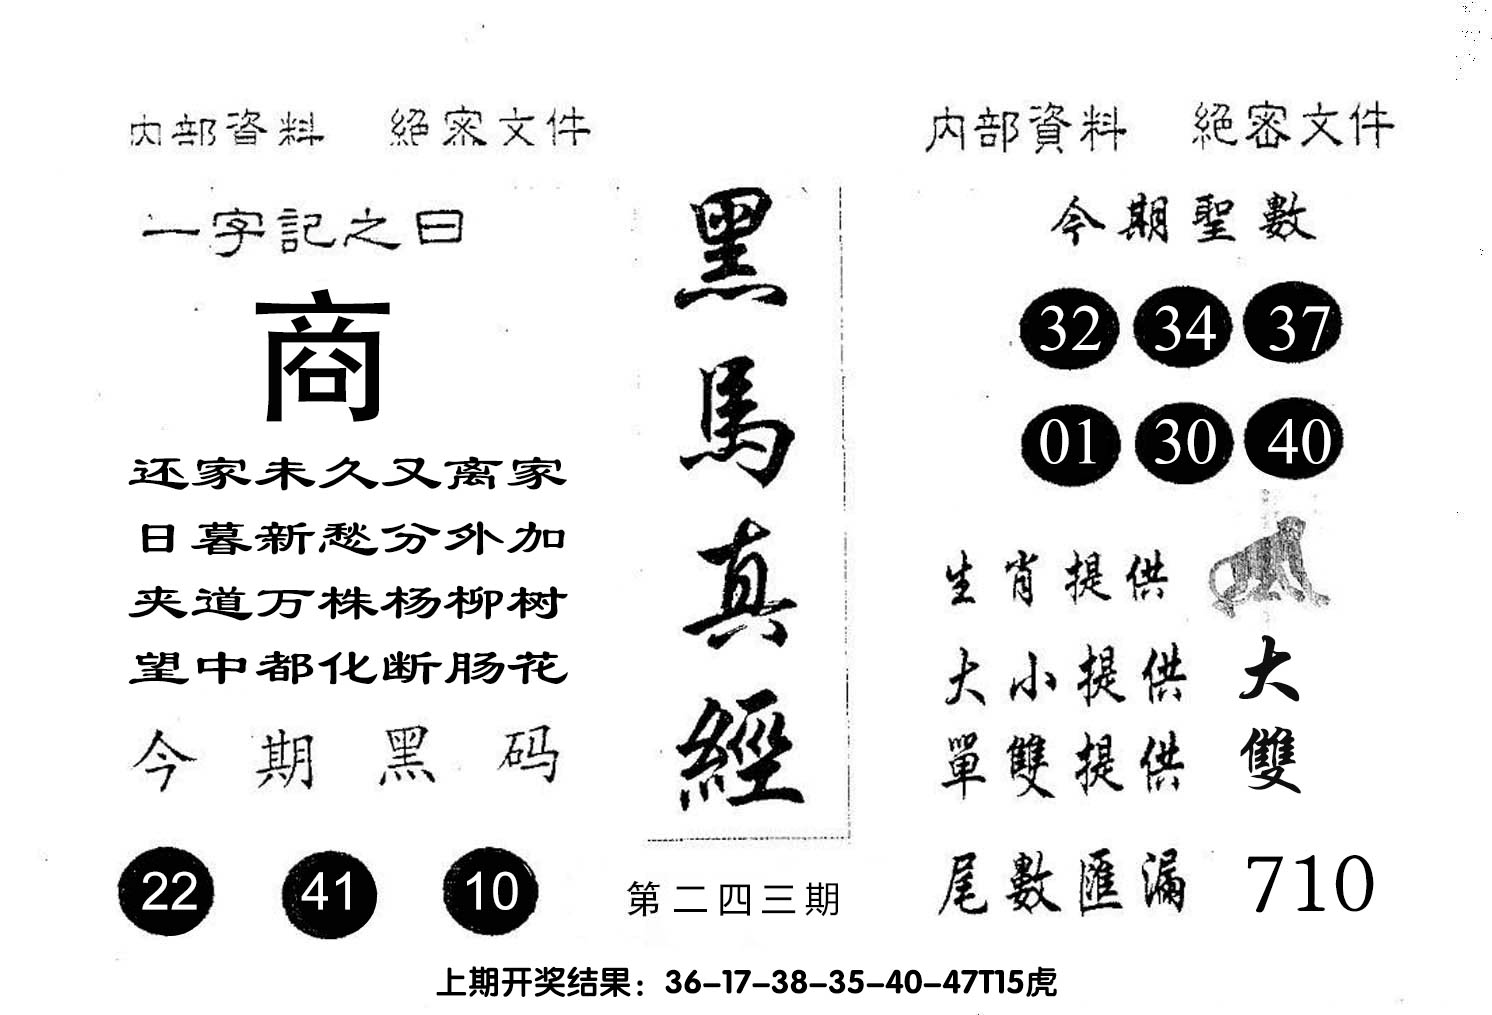 内部資料 絕密文件
一字記之曰
商
还家未久又离家
日暮新愁分外加
夹道万株杨柳树
望中都化断肠花
今期黑码
22 41 10
黑馬真經
第二四三期
内部資料 絕密文件
今期聖數
32 34 37
01 30 40
生肖提供
大小提供 大
單雙提供 雙
尾數匯漏 710
上期开奖结果：36-17-38-35-40-47T15虎